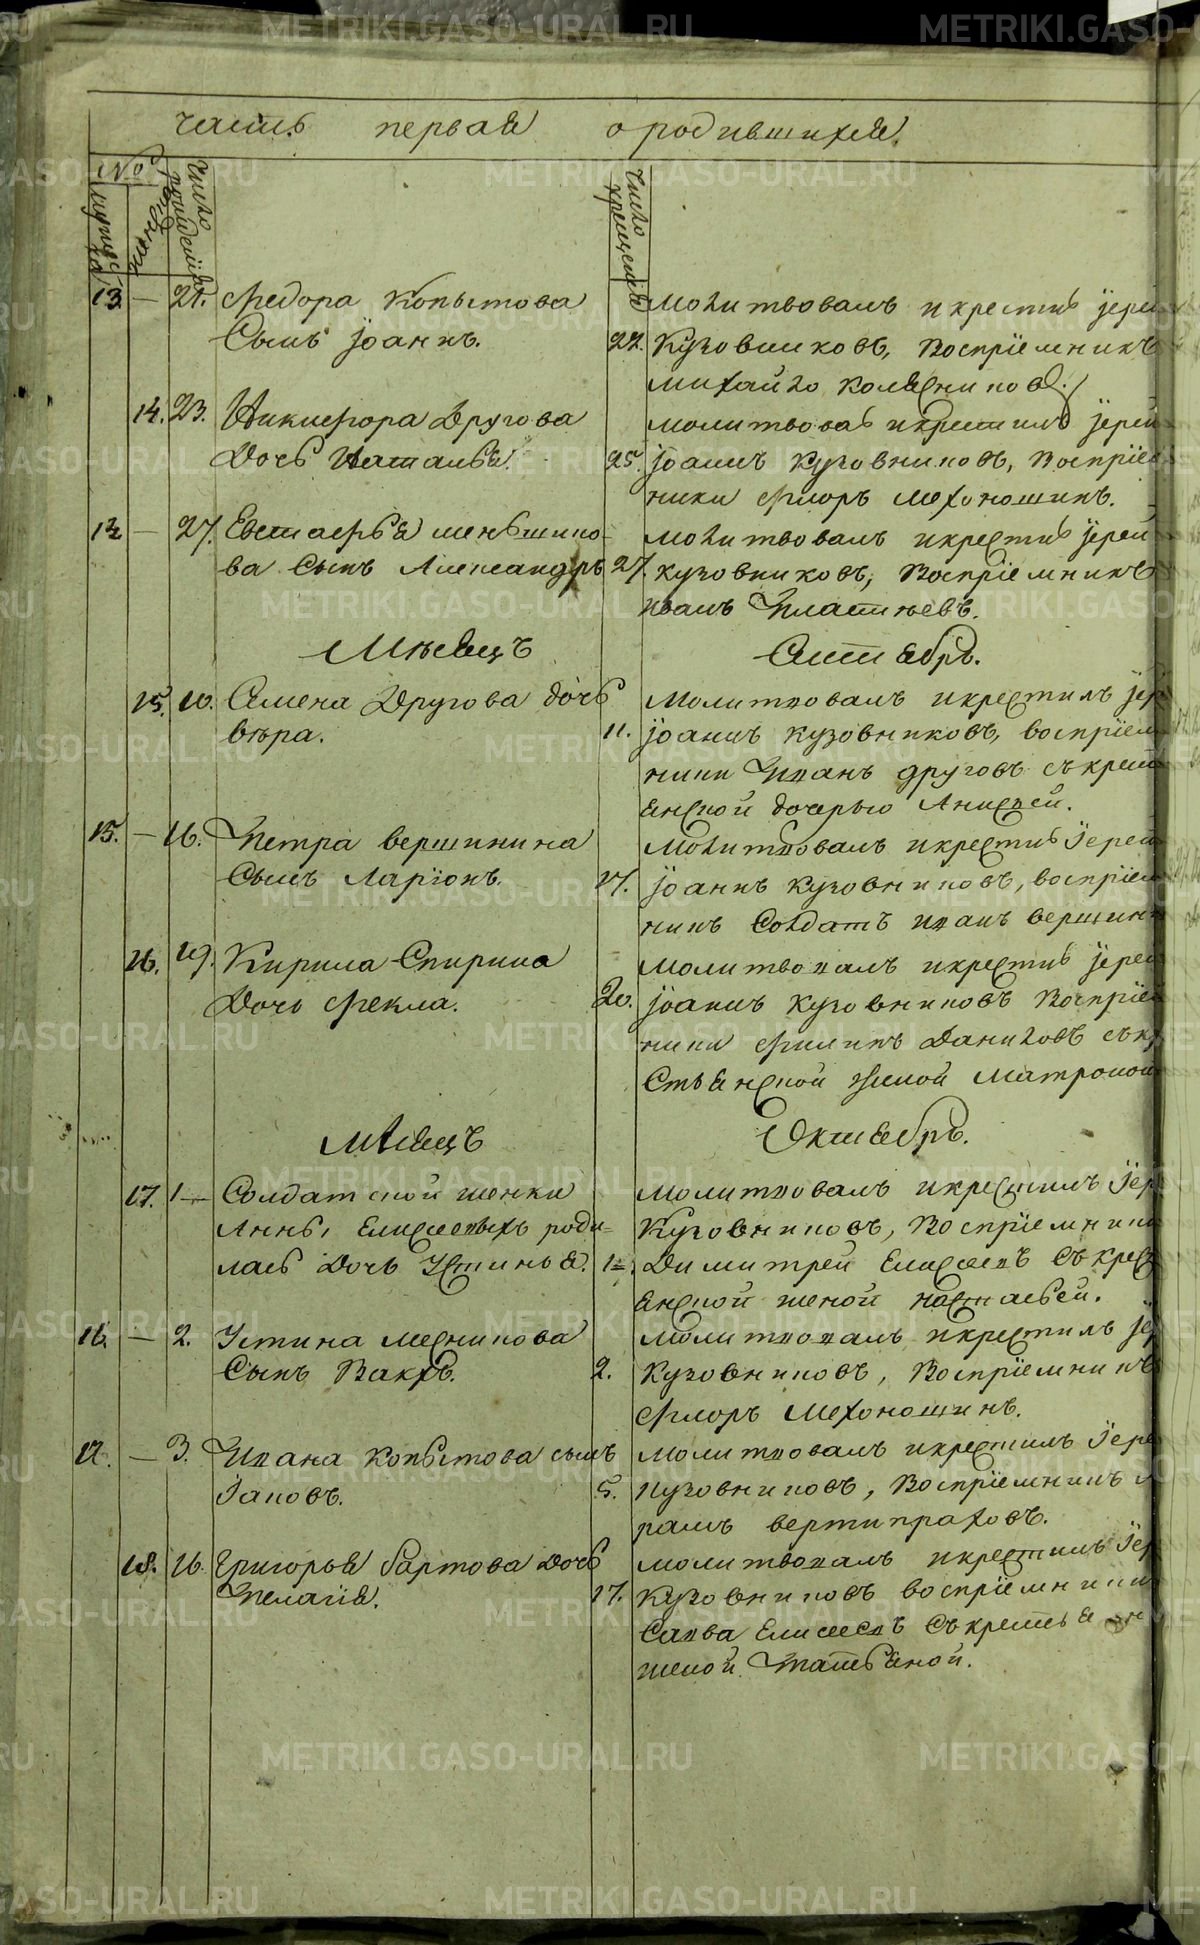 часть первая о родившихся
№
мужеска
женска
число рожденія
число крещенія
13. — 21. Федора Копытова
Сынъ Іоаннъ.
22.
Молитвовалъ и крестилъ іерей
Кузовниковъ, Воспріемникъ
Михайло Колесниковъ.
14. 23. Никифора Другова
Дочь Наталья.
25.
молитвовалъ и крестилъ іерей
Іоаннъ Кузовниковъ, Воспріем
ники Флоръ Мехоношинъ.
14 — 27. Евстафья меньшико-
ва Сынъ Александръ
27.
Молитвовалъ и крестилъ іерей
кузовниковъ, Воспріемникъ
Иванъ Платневъ.
Мѣсяцъ Сентябрь.
15. 10. Семена Другова дочь
вѣра.
11.
Молитвовалъ и крестилъ іер
Іоаннъ Кузовниковъ, воспріем
ники Иванъ друговъ съ крест
янской дочерью Анисьей.
15. — 16. Петра вершинина
Сынъ Ларіонъ.
17.
Молитвовалъ и крестилъ Іерей
Іоаннъ Кузовниковъ, воспріем
никъ Солдатъ Иванъ вершин
16. 19. Кирила Спирина
Дочь Фекла.
20.
Молитвовалъ и крестилъ іерей
Іоаннъ Кузовниковъ Воспріем
ники Филипъ Даниловъ съ кр
Стьянской женой Матроной
Мѣсяцъ Октябрь.
17. 1 — Солдатской женки
Анны Елисеевыхъ роди-
лась Дочь Устинья.
1.
Молитвовалъ и крестилъ Іер
Кузовниковъ, Воспріемники
Димитрей Елисеевъ Съ крест
янской женой Настасьей.
16. — 2. Устина Месникова
Сынъ Вакхъ.
2.
Молитвовалъ и крестилъ іер
Кузовниковъ, Воспріемникъ
Флоръ Мехоношинъ.
17. — 3. Ивана Копытова сынъ
Іаковъ.
5.
Молитвовалъ и крестилъ Іере
Кузовниковъ, Воспріемникъ
рамъ вертипраховъ.
18. 16. Григорья Бартова Дочь
Пелагія.
17.
Молитвовалъ и крестилъ Іер
Кузовниковъ воспріемники
Савва Елисеевъ Съ крестьян
женой Татьяной.
METRIKI.GASO-URAL.RU